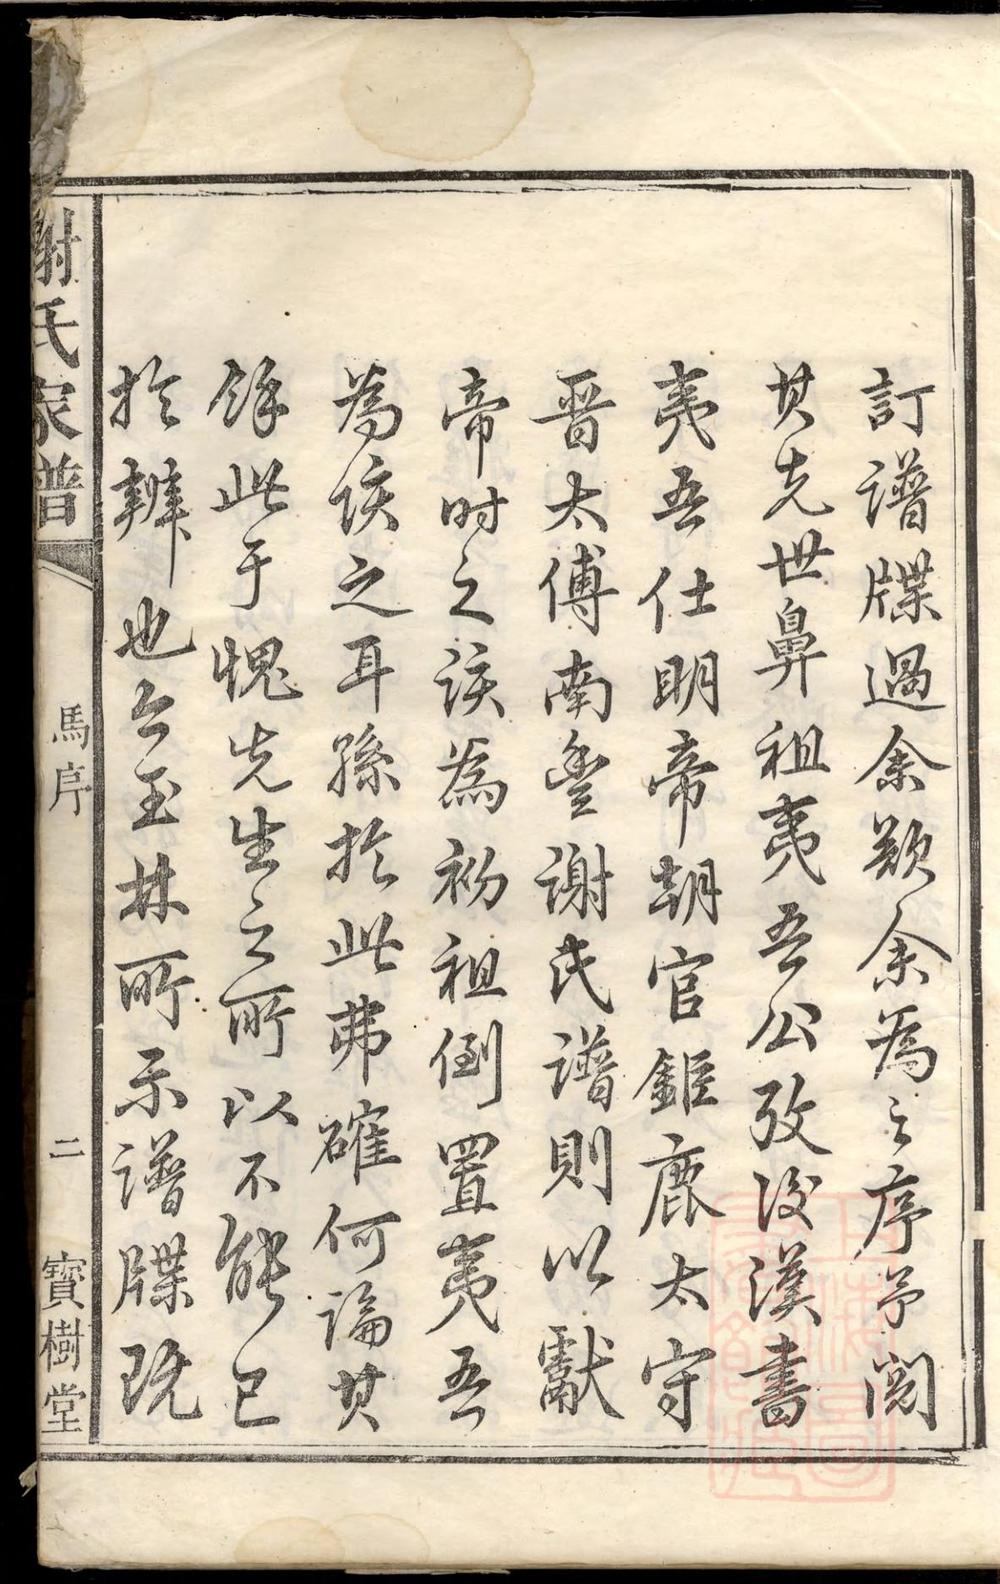 訂譜牒過余歎余為之序予閱
其先世鼻祖夷吾公攷後漢書
夷吾仕明帝朝官鉅鹿太守
晋太傅南豊謝氏譜則以獻
帝时之誤為初祖倒置夷吾
為誤之耳孫扵此弗確何論其
餘此于愧先生之所以不能已
扵辨也今玉林所示譜牒既
謝氏家譜
馬序
二
寶樹堂